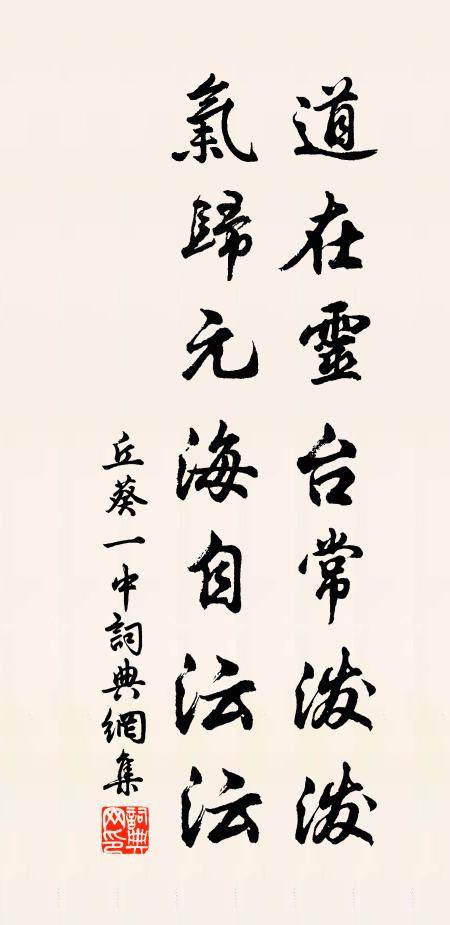 道在靈台常泼泼
氣歸元海自沄沄
丘葵一中詞典網集
詞典網印